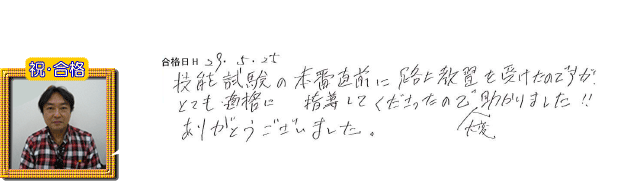 祝・合格
合格日H 29.5.25
技能試験の本番直前に路上教習を受けたのですが、
とても 適格に 指導してくださったので、助かりました!!
大変
ありがとうございました。